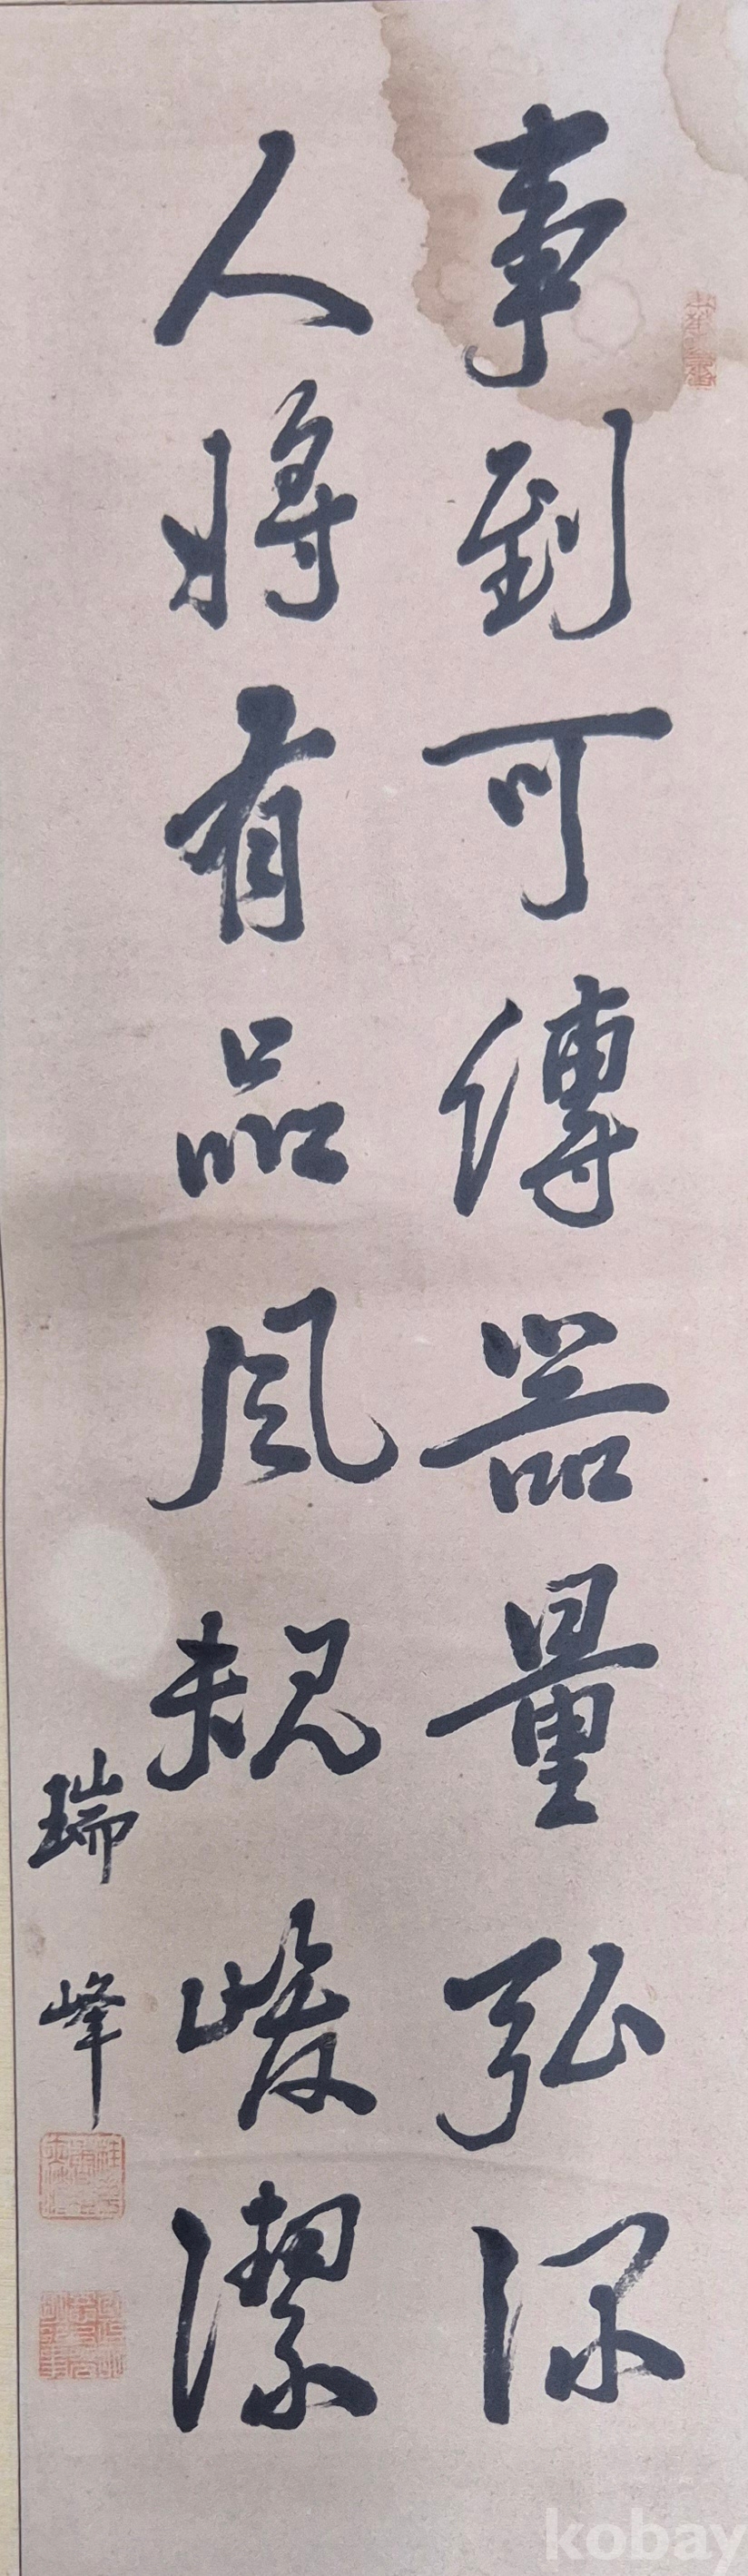 事到可傳器量弘深
人將有品風規峻潔
瑞峰
kobay